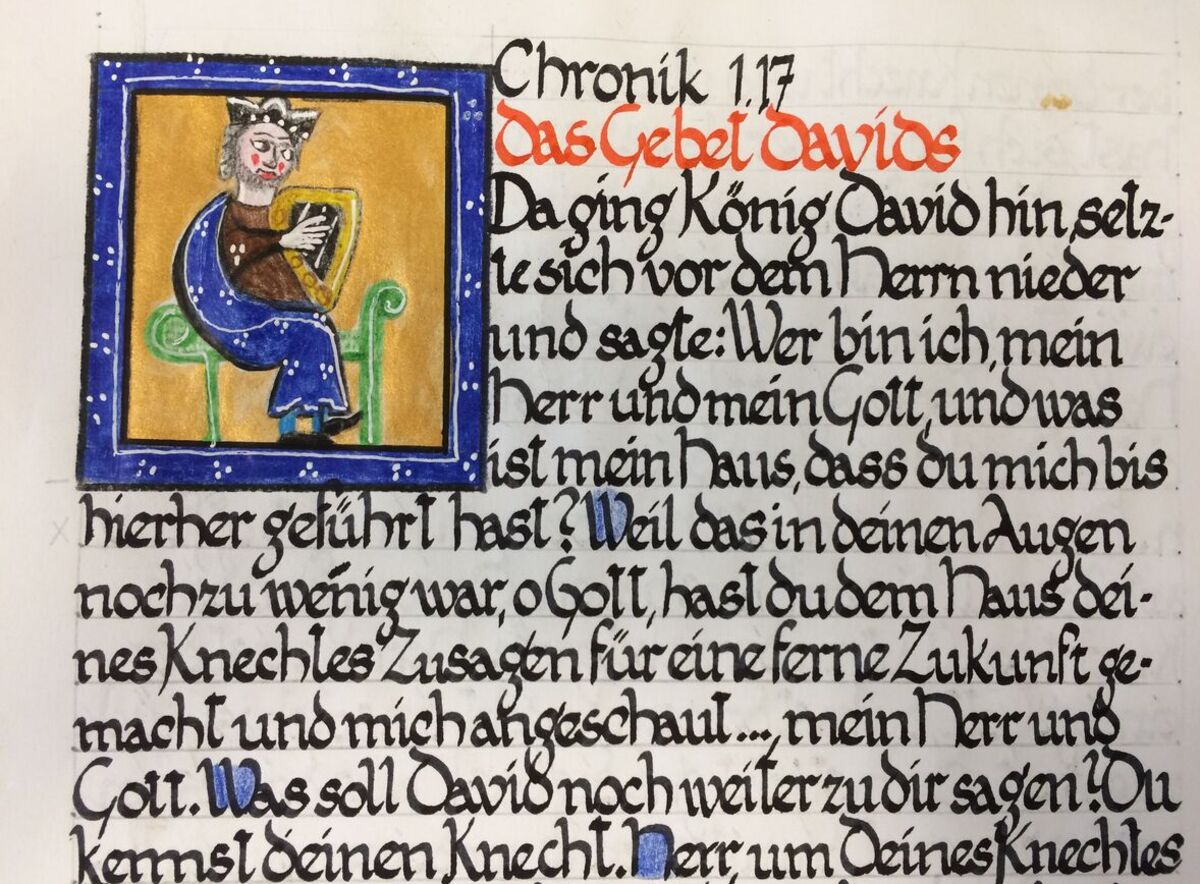 Chronik 1.17
Das Gebet Davids
Da ging König David hin, setz-
te sich vor dem Herrn nieder
und sagte: Wer bin ich, mein
Herr und mein Gott, und was
ist mein Haus, dass du mich bis
hierher geführt hast? Weil das in deinen Augen
noch zu wenig war, o Gott, hast du dem Haus dei-
nes Knechtes Zusagen für eine ferne Zukunft ge-
macht und mich angeschaut..., mein Herr und
Gott. Was soll David noch weiter zu dir sagen? Du
kennst deinen Knecht. Herr, um Deines Knechtes